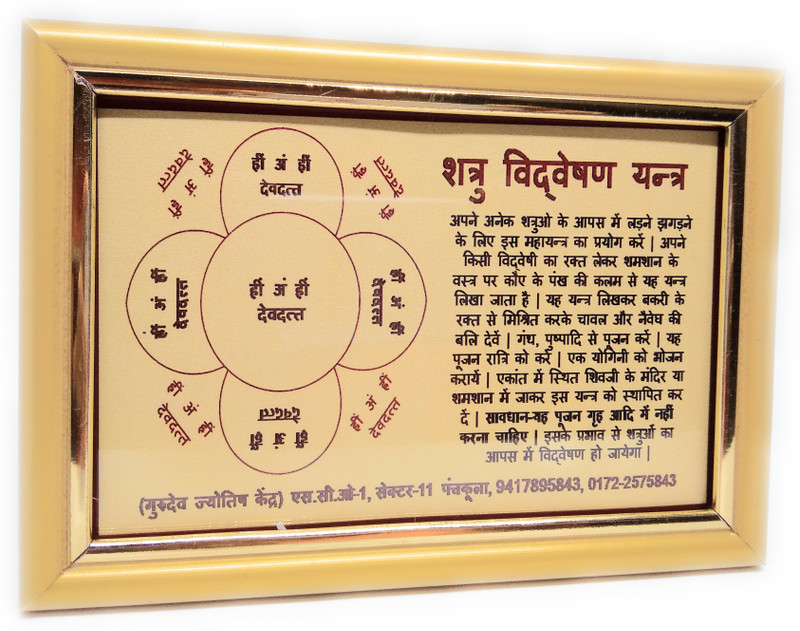 शत्रु विद्वेषण यन्त्र
अपने अनेक शत्रुओ के आपस में लड़ने झगड़ने
के लिए इस महायन्त्र का प्रयोग करें | अपने
किसी विद्वेषी का रक्त लेकर शमशान के
वस्त्र पर कौए के पंख की कलम से यह यन्त्र
लिखा जाता है | यह यन्त्र लिखकर बकरी के
रक्त से मिश्रित करके चावल और नैवेघ की
बलि देवें | गंध, पुष्पादि से पूजन करें | यह
पूजन रात्रि को करें | एक योगिनी को भोजन
करायें | एकांत में स्थित शिवजी के मंदिर या
शमशान में जाकर इस यन्त्र को स्थापित कर
दें | सावधान-यह पूजन गृह आदि में नहीं
करना चाहिए | इसके प्रभाव से शत्रुओं का
आपस में विद्वेषण हो जायेगा |
ह्रीं अं ह्रीं
देवदत्त
ह्रीं अं ह्रीं
देवदत्त
ह्रीं अं ह्रीं
देवदत्त
ह्रीं अं ह्रीं
देवदत्त
ह्रीं अं ह्रीं
देवदत्त
ह्रीं अं ह्रीं
देवदत्त
ह्रीं अं ह्रीं
देवदत्त
ह्रीं अं ह्रीं
देवदत्त
ह्रीं अं ह्रीं
देवदत्त
(गुरुदेव ज्योतिष केंद्र) एस.सी.ओ-1, सेक्टर-11 पंचकूला, 9417895843, 0172-2575843